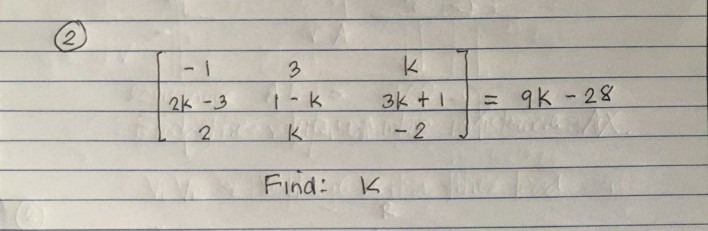 2
-1 3 k
2k - 3 1 - k 3k + 1 = 9k - 28
2 k -2
Find: k